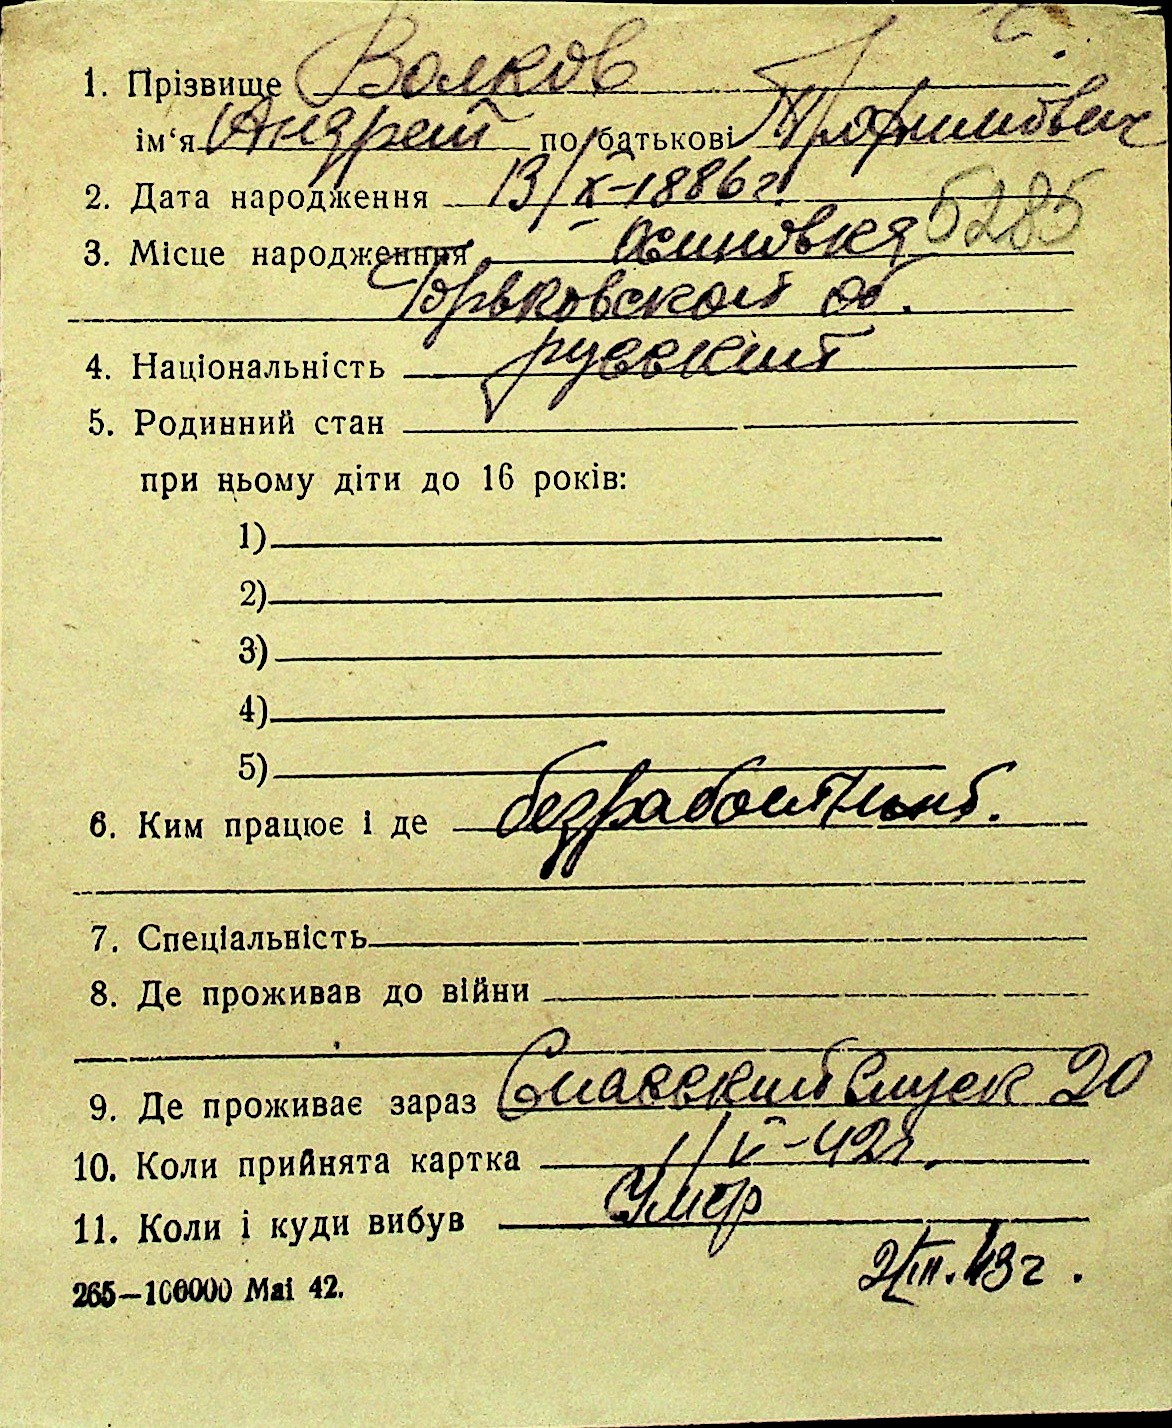 1. Прізвище Волков
ім‘я Андрей по батькові Трофимович
2. Дата народження 13/X-1886 г.
5285
3. Місце народженння Осиновка
Горьковской об.
4. Національність русский
5. Родинний стан
при цьому діти до 16 років:
1)
2)
3)
4)
5)
6. Ким працює і де безработный.
7. Спеціальність
8. Де проживав до війни
9. Де проживає зараз Спасский спуск 20
10. Коли прийнята картка 1/V-42г.
11. Коли і куди вибув Умер
2/III.43 г.
265—100000 Mai 42.